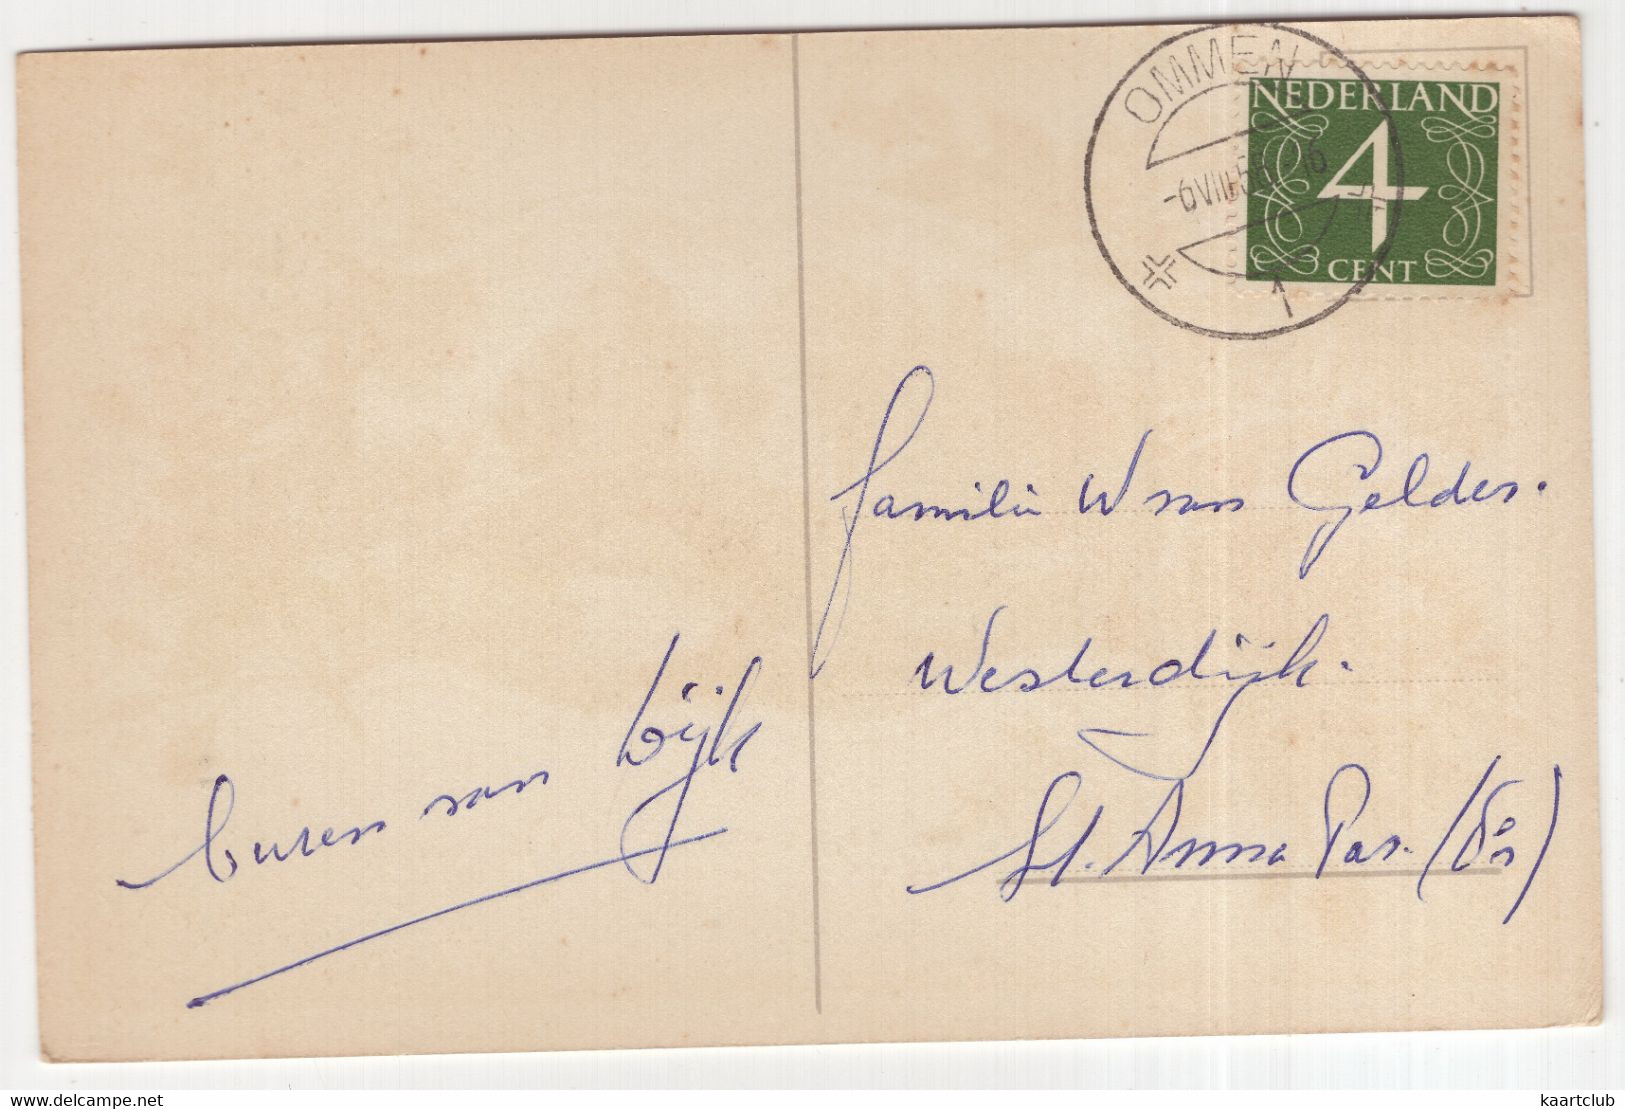 OMMEN
NEDERLAND
4
CENT
1
familie W van Gelder.
Westerdijk.
St. Anna Par. (Fr.)
buren van Dijk
delcampe.net
kaartclub